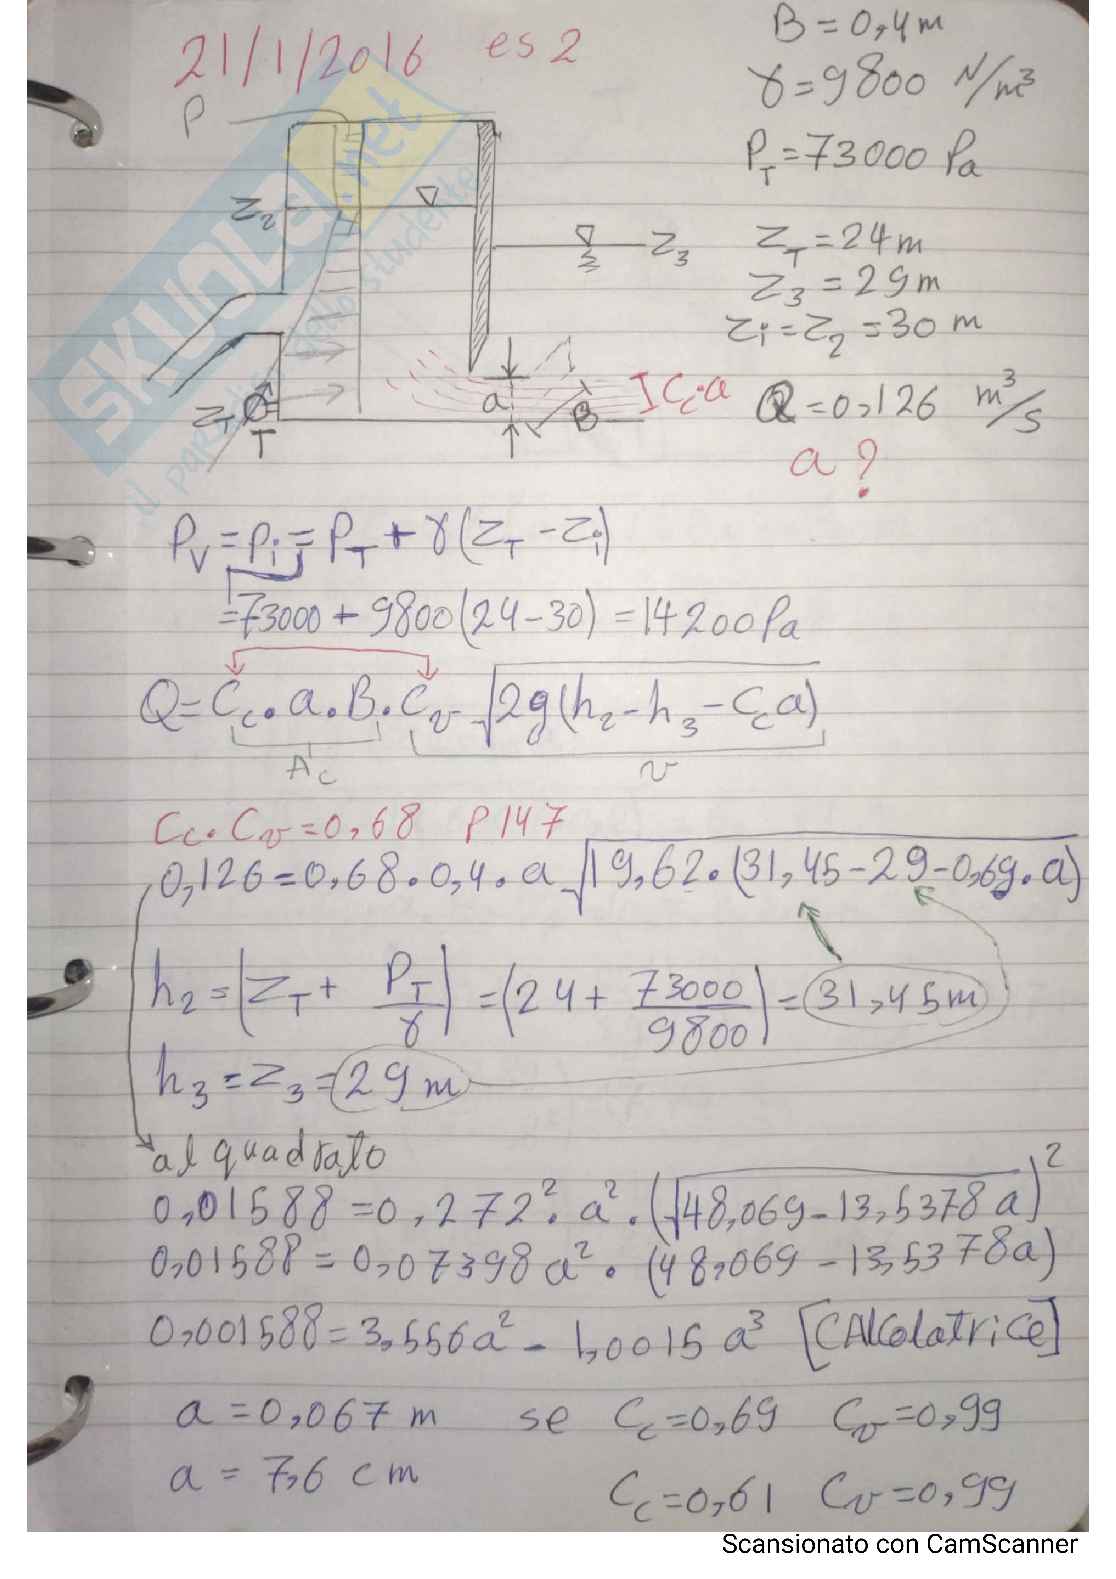 21/1/2016 es 2
B = 0,4m
γ = 9800 N/m³
P_T = 73000 Pa
Z_T = 24m
Z_3 = 29m
Z_i = Z_2 = 30 m
Q = 0,126 m³/s
a ?
P
Z_2
Z_3
Z_T
T
a
B
C_c·a
SKUOLA.net
il paradiso dello studente
P_V = P_i = P_T + γ(Z_T - Z_i)
= 73000 + 9800(24-30) = 14200 Pa
Q = C_c · a · B · C_v √2g(h_2 - h_3 - C_c a)
A_c v
C_c · C_v = 0,68 P 147
0,126 = 0,68 · 0,4 · a √19,62 · (31,45 - 29 - 0,69 · a)
h_2 = (Z_T + P_T/γ) = (24 + 73000/9800) = 31,45m
h_3 = Z_3 = 29 m
al quadrato
0,01588 = 0,272² · a² · (√48,069 - 13,5378 a)²
0,01588 = 0,07398 a² · (48,069 - 13,5378a)
0,001588 = 3,556a² - 1,0015 a³ [CAlcolatrice]
a = 0,067 m se C_c = 0,69 C_v = 0,99
a = 7,6 cm C_c = 0,61 C_v = 0,99
Scansionato con CamScanner